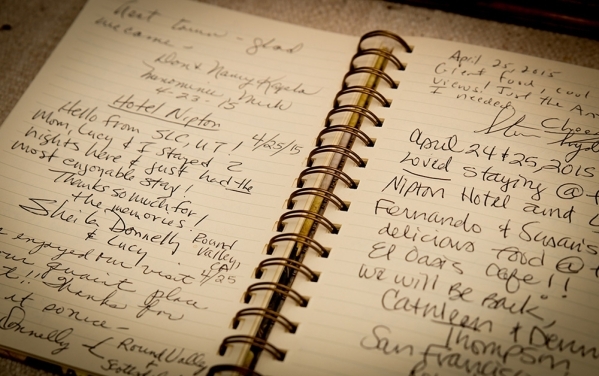 Next time - glad
we came -
Don & Nancy
Menominee, Mich
4-23-15
Hotel Nipton
Hello from SLC, UT! 4/25/15
Mom, Lucy & I stayed 2
nights here & just had the
most enjoyable stay!
Thanks so much for
the memories!
Sheila Donnelly
& Lucy
Round
Valley,
4/25
enjoyed our visit
our quaint place
Thanks for
so nice -
Donnelly
Round Valley
&
April 25, 2015
Great food, cool
views! Just the
I needed.
Cheers
April 24 & 25, 2015
Loved staying @
Nipton Hotel and
Fernando & Susan's
delicious food @
El Oasis Cafe!!
We will be back,
Cathleen &
Thompson
San Francisco